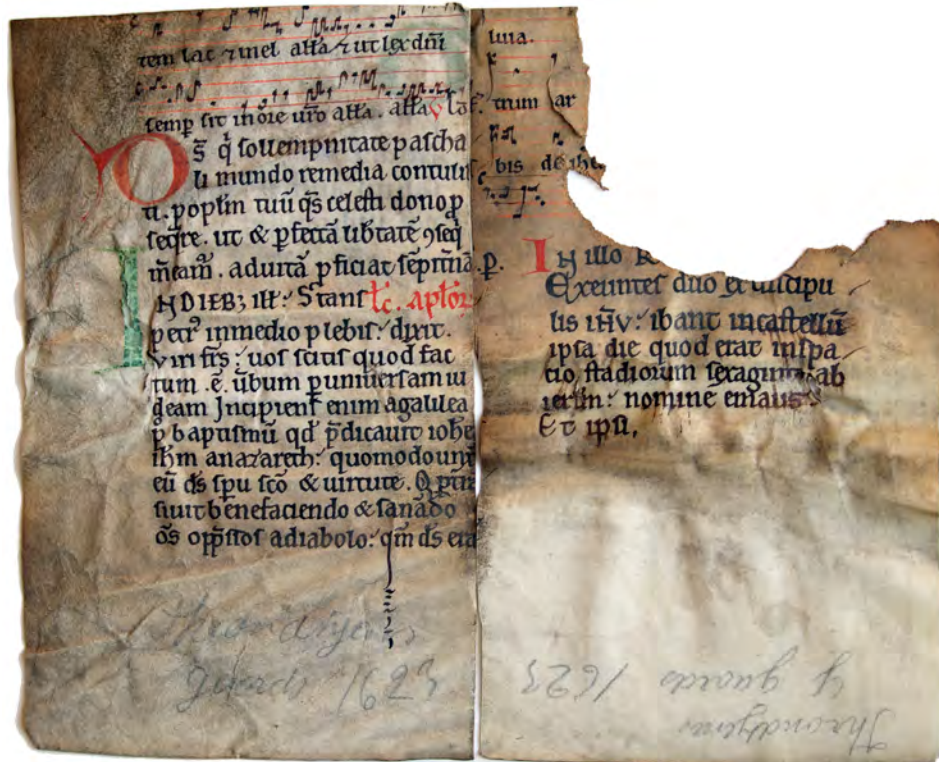 tem lac ⁊ mel all̅a ⁊ ut lex dn̅i
semp̲ sit in ore u̅ro all̅a . all̅a
O s̅ q̇ sollempnitate pascha
li mundo remedia contulis
ti . popl̅m tuu̅ qs̅ celesti dono p̲
seq̅re . ut & p̲fecta̅ lib̅tate̅ ꝯseq̇
m̅eam̅ . ad uita̅ p̲ficiat se̅pit̅na̅ . p̲.
I N DIEBꝫ ill̅ : Stans l̅c . aplo̅ꝝ
petr᷒ in medio plebis : dixit .
Viri fr̅s : uos scitis quod fac
tum . e̅ . u̅bum p̲ uniuersam iu
deam Incipiens enim a galilea
p᷒ baptismu̅ qd̅ p̅dicauit ioh̅e
ih̅m a nazareth : quomodo unx̅
eu̅ ds̅ sp̅u sc̅o & uirtute . Q p̲t̅ra̅
siuit benefaciendo & sana̅do
o̅s opp̅ssos a diabolo : qm̅ ds̅ era
Throndhjems
gaards 1623
luia.
trum ar
bis de ihe
I N illo
Exeuntes duo ex discipu
lis ih̅v : ibant in castellu̅
ipsa die quod erat in spa
tio stadiorum sexaginta ab
ierl̅m : nomine emaus
Et ipsi,
Throndhjems
gaards 1623